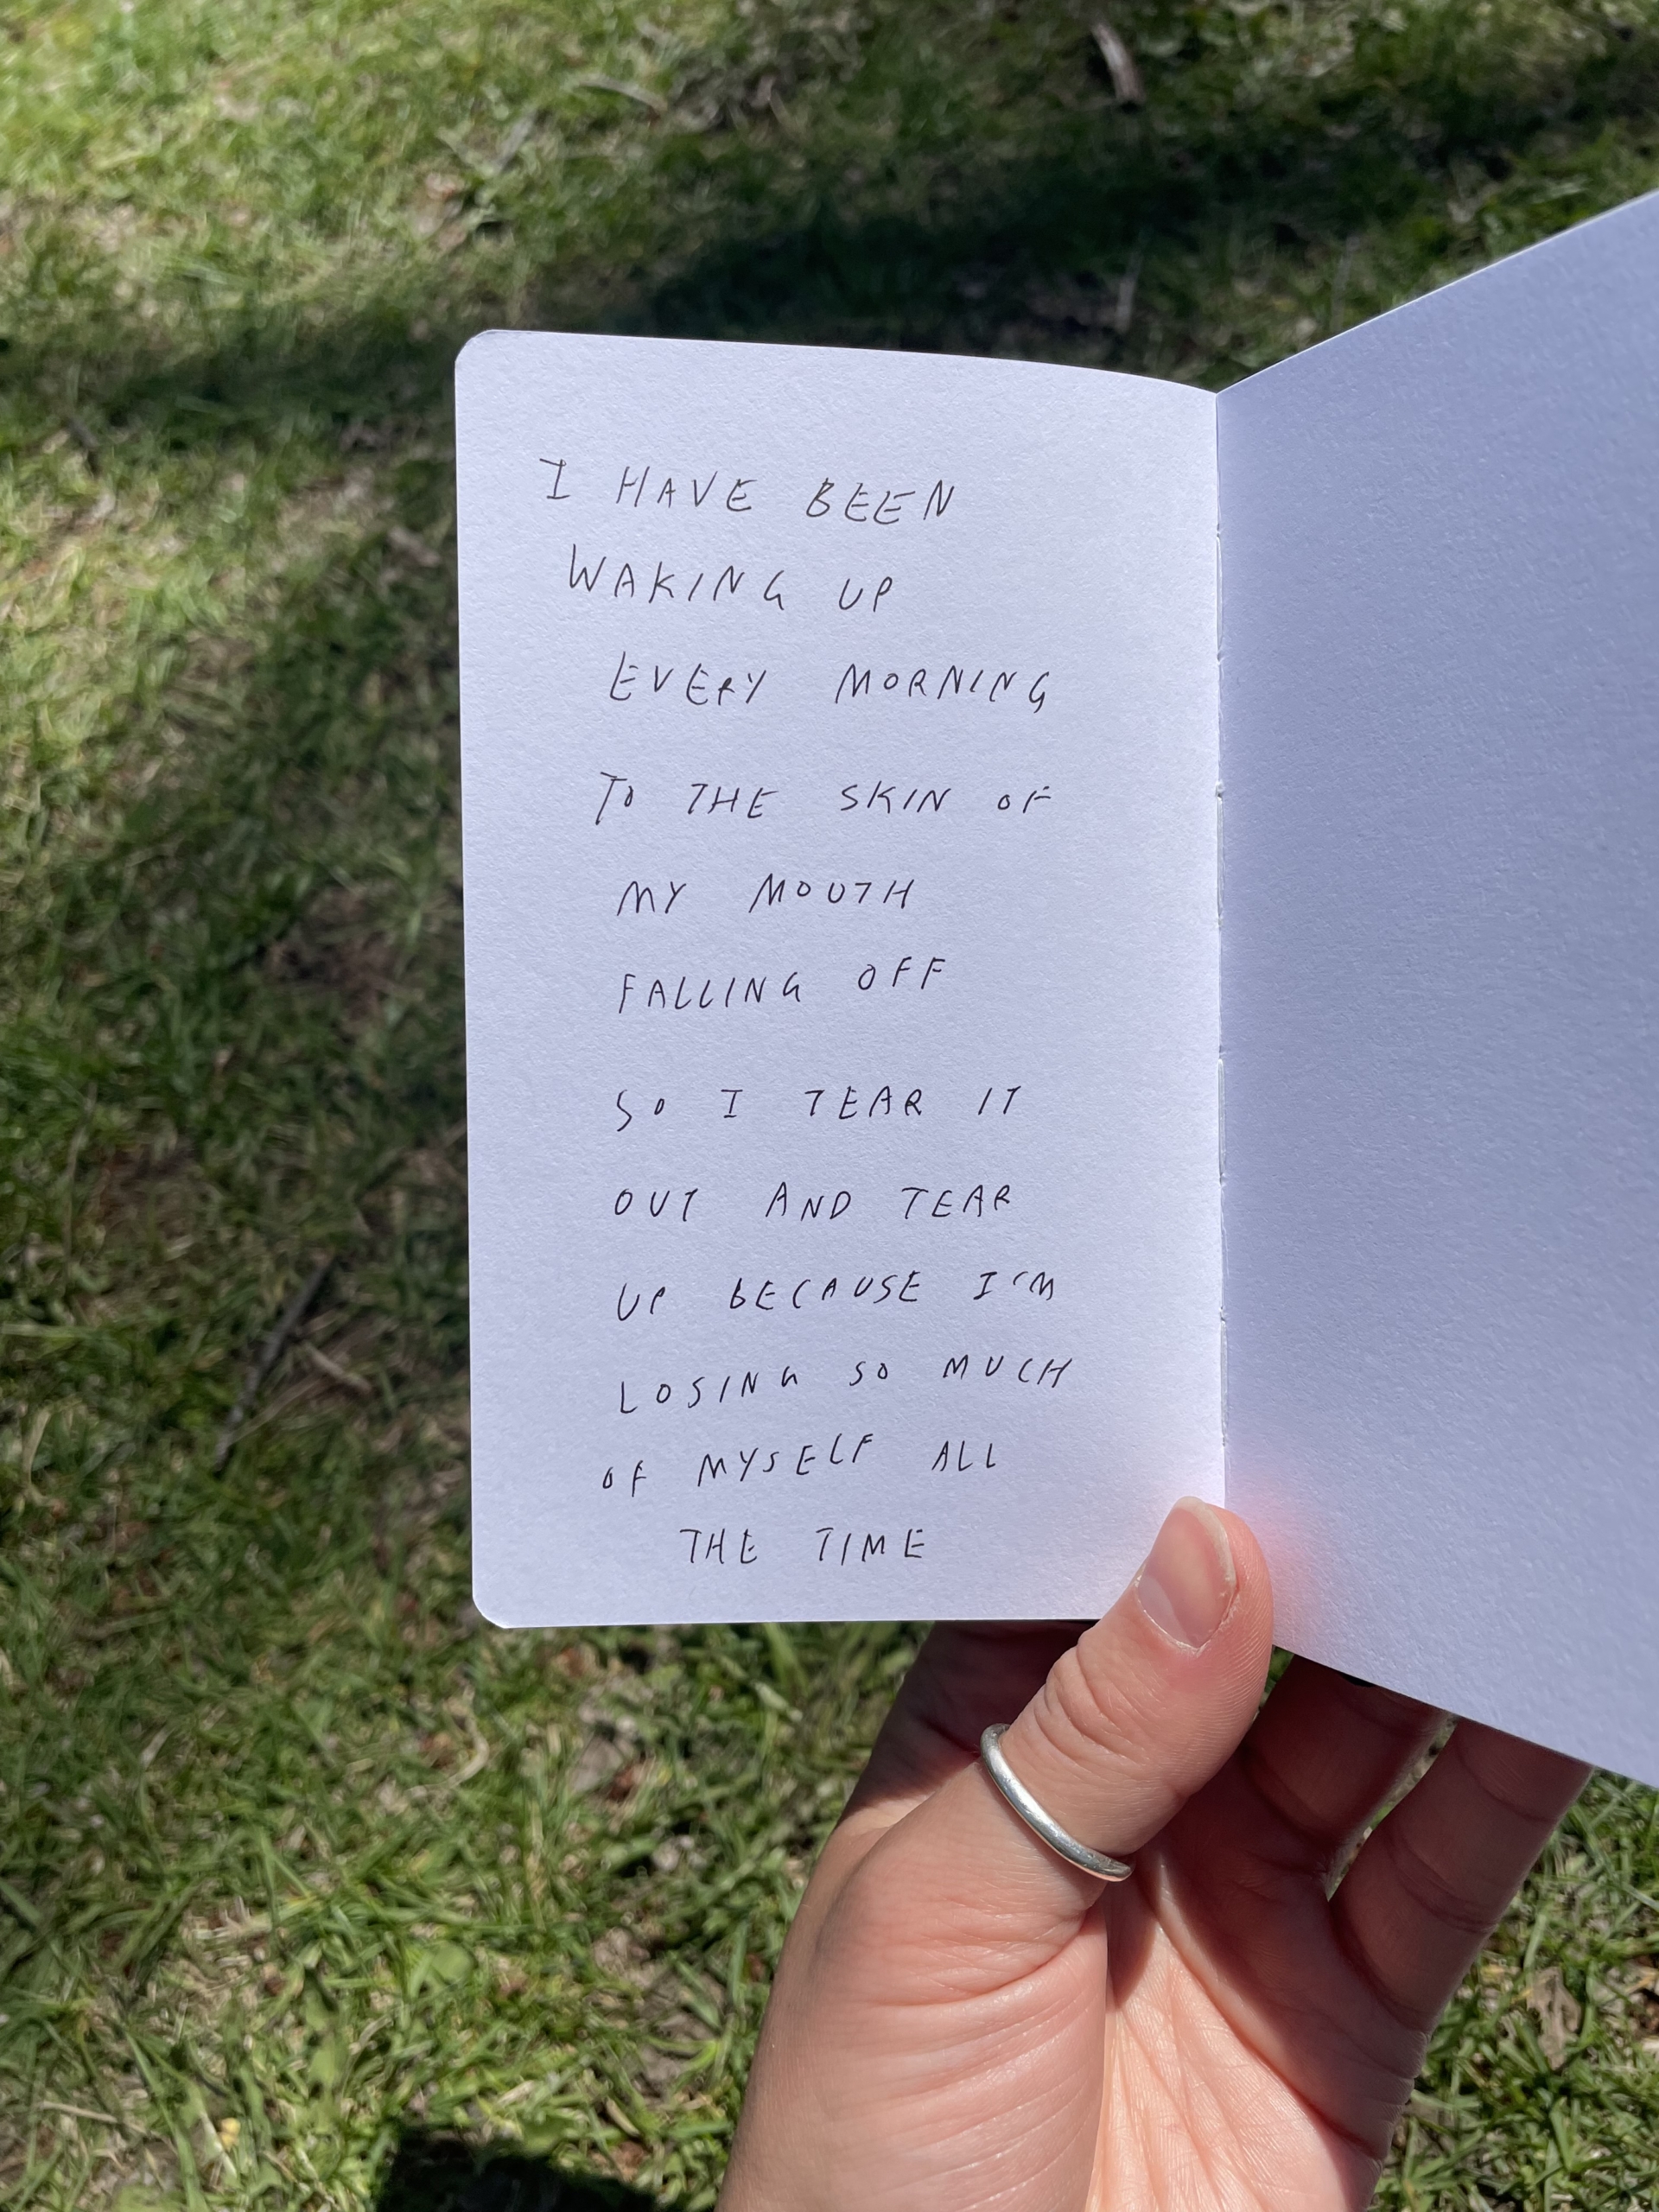 I HAVE BEEN
WAKING UP
EVERY MORNING
TO THE SKIN OF
MY MOUTH
FALLING OFF
SO I TEAR IT
OUT AND TEAR
UP BECAUSE I'M
LOSING SO MUCH
OF MYSELF ALL
THE TIME